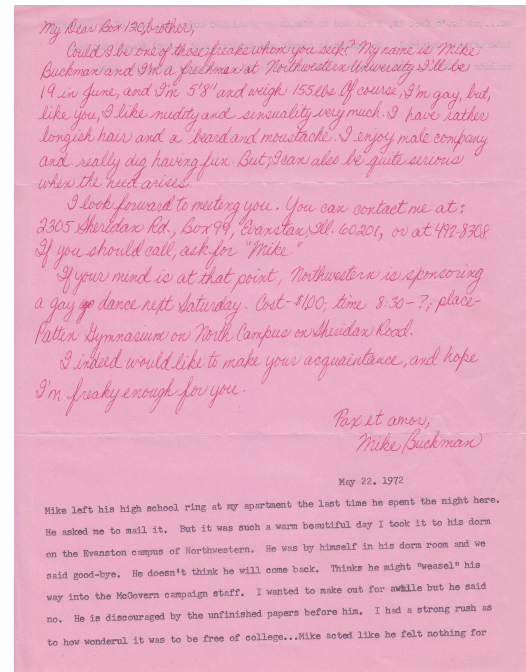 My Dear Box 120, brother,
Could I be one of those freaks whom you seek? My name is Mike
Buckman and I'm a freshman at Northwestern University I'll be
19 in June, and I'm 5'8" and weigh 155 lbs Of course, I'm gay, but,
like you, I like nudity and sensuality very much. I have rather
longish hair and a beard and moustache. I enjoy male company
and really dig having fun. But, I can also be quite serious
when the need arises.
I look forward to meeting you. You can contact me at:
2305 Sheridan Rd., Box 99, Evanston, Ill. 60201, or at 492-8308.
If you should call, ask for "Mike."
If your mind is at that point, Northwestern is sponsoring
a gay dance next Saturday. Cost-$1.00; time 8:30-?; place-
Patten Gymnasium on North Campus on Sheridan Road.
I indeed would like to make your acquaintance, and hope
I'm freaky enough for you.
Pax et amor,
Mike Buckman
May 22. 1972
Mike left his high school ring at my apartment the last time he spent the night here.
He asked me to mail it. But it was such a warm beautiful day I took it to his dorm
on the Evanston campus of Northwestern. He was by himself in his dorm room and we
said good-bye. He doesn't think he will come back. Thinks he might "weasel" his
way into the McGovern campaign staff. I wanted to make out for awhile but he said
no. He is discouraged by the unfinished papers before him. I had a strong rush as
to how wonderul it was to be free of college...Mike acted like he felt nothing for